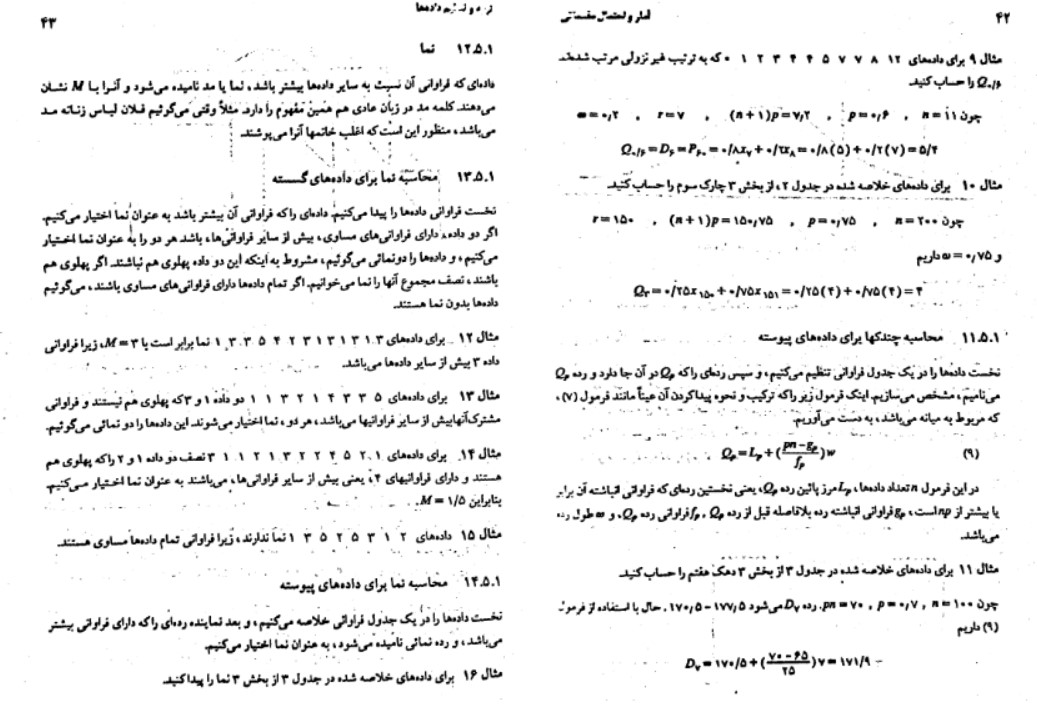 ۴۲
آمار و احتمال مقدماتی
مثال ۹ برای داده‌های ۱۲ ۸ ۷ ۷ ۵ ۴ ۴ ۳ ۲ ۱ ۰ که به ترتیب غیر نزولی مرتب شده‌اند
Q۰/۶ را حساب کنید.
چون n=۱۱ , p=۰٫۶ , (n+۱)p=۷٫۲ , r=۷ , ω=۰٫۲
Q۰/۶=D۶=P۶۰=۰/۸x۷+۰/۲x۸=۰/۸(۵)+۰/۲(۷)=۵/۴
مثال ۱۰ برای داده‌های خلاصه شده در جدول ۲، از بخش ۳ چارک سوم را حساب کنید.
چون n=۲۰۰ , p=۰٫۷۵ , (n+۱)p=۱۵۰٫۷۵ , r=۱۵۰
و ω=۰٫۷۵ داریم
Q۳=۰/۲۵x۱۵۰+۰/۷۵x۱۵۱=۰/۲۵(۴)+۰/۷۵(۴)=۴
۱۱.۵.۱ محاسبه چندکها برای داده‌های پیوسته
نخست داده‌ها را در یک جدول فراوانی تنظیم می‌کنیم، و سپس رده‌ای را که Qp در آن جا دارد و رده Qp
می‌نامیم، مشخص می‌سازیم. اینک فرمول زیر را که ترکیب و نحوه پیدا کردن آن عیناً مانند فرمول (۷)،
که مربوط به میانه می‌باشد، به دست می‌آوریم.
(۹) Qp=Lp+(pn-gp/fp)w
در این فرمول n تعداد داده‌ها، Lp مرز پائین رده Qp، یعنی نخستین رده‌ای که فراوانی انباشته آن برابر
یا بیشتر از np است، gp فراوانی انباشته رده بلافاصله قبل از رده Qp، fp فراوانی رده Qp، و w طول رده
می‌باشد.
مثال ۱۱ برای داده‌های خلاصه شده در جدول ۳ از بخش ۳ دهک هفتم را حساب کنید.
چون n=۱۰۰ , p=۰٫۷ , pn=۷۰. رده D۷ می‌شود ۱۷۷٫۵-۱۷۰٫۵. حال با استفاده از فرمول
(۹) داریم
D۷=۱۷۰/۵+(۷۰-۶۵/۲۵)۷=۱۷۱/۹
۴۳
داده‌ها
۱۲.۵.۱ نما
داده‌ای که فراوانی آن نسبت به سایر داده‌ها بیشتر باشد، نما یا مد نامیده می‌شود و آنرا بـا M نشـان
می‌دهند. کلمه مد در زبان عادی هم همین مفهوم را دارد. مثلاً وقتی می‌گوئیم فـلان لبـاس زنـانه مـد
می‌باشد، منظور این است که اغلب خانمها آنرا می‌پوشند.
۱۳.۵.۱ محاسبه نما برای داده‌های گسسته
نخست فراوانی داده‌ها را پیدا می‌کنیم. داده‌ای را که فراوانی آن بیشتر باشد به عنوان نما اختیار می‌کنیم.
اگر دو داده، دارای فراوانی‌های مساوی، بیش از سایر فراوانی‌ها، باشد هر دو را به عنوان نما اختیار
می‌کنیم، و داده‌ها را دونمائی می‌گوئیم، مشروط به اینکه این دو داده پهلوی هم نباشند. اگر پهلوی هم
باشند، نصف مجموع آنها را نما می‌خوانیم. اگر تمام داده‌ها دارای فراوانی‌های مساوی باشند، می‌گوئیم
داده‌ها بدون نما هستند.
مثال ۱۲ برای داده‌های ۳ ۱ ۳ ۱ ۳ ۱ ۳ ۲ ۴ ۵ ۳ ۳ ۱ نما برابر است با M=۳، زیرا فراوانی
داده ۳ بیش از سایر داده‌ها می‌باشد.
مثال ۱۳ برای داده‌های ۵ ۳ ۳ ۴ ۱ ۲ ۳ ۱ ۱ دو داده ۱ و ۳ که پهلوی هم نیستند و فراوانی
مشترک آنها بیش از سایر فراوانیها می‌باشد، هر دو، نما اختیار می‌شوند. این داده‌ها را دو نمائی می‌گوئیم.
مثال ۱۴ برای داده‌های ۱ ۲ ۵ ۴ ۲ ۲ ۳ ۱ ۲ ۱ ۱ ۳ نصف دو داده ۱ و ۲ را که پهلوی هم
هستند و دارای فراوانیهای ۴، یعنی بیش از سایر فراوانی‌ها، می‌باشند به عنوان نما اخـتیار مـی‌کنیم.
بنابراین M=۱/۵.
مثال ۱۵ داده‌های ۲ ۱ ۳ ۵ ۲ ۵ ۳ ۱ نما ندارند، زیرا فراوانی تمام داده‌ها مساوی هستند.
۱۴.۵.۱ محاسبه نما برای داده‌های پیوسته
نخست داده‌ها را در یک جدول فراوانی خلاصه می‌کنیم، و بعد نماینده رده‌ای را که دارای فراوانی بیشتر
می‌باشد، و رده نمائی نامیده می‌شود، به عنوان نما اختیار می‌کنیم.
مثال ۱۶ برای داده‌های خلاصه شده در جدول ۳ از بخش ۳ نما را پیدا کنید.